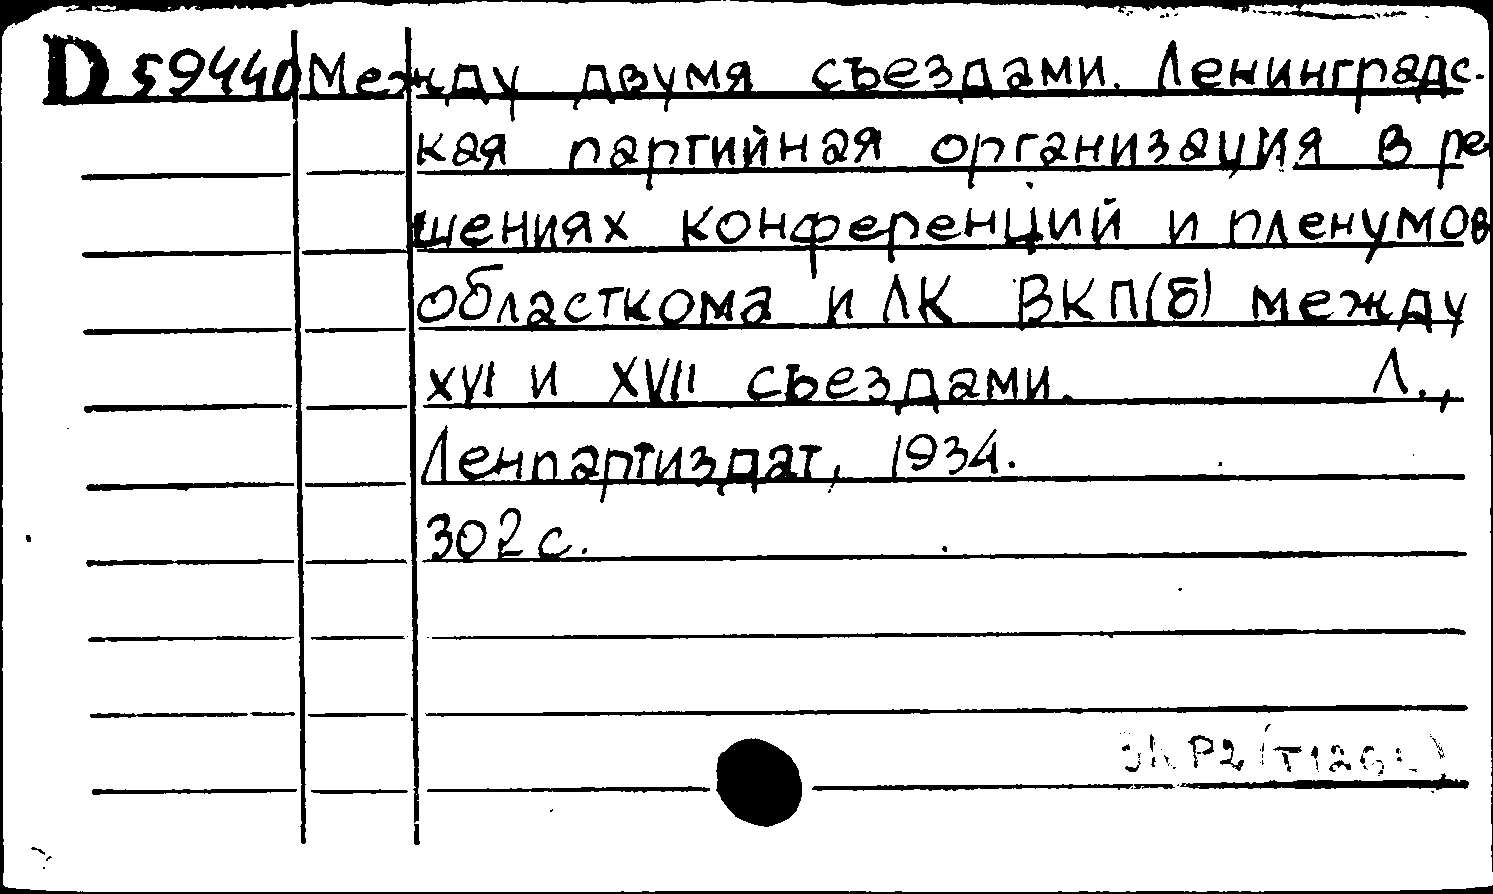 D 59440 Между двумя съездами. Ленинградс-
кая партийная организация в ре
шениях конференций и пленумов
областкома и ЛК ВКП(б) между
XVI и XVII съездами. Л.,
Ленпартиздат, 1934.
302 с.